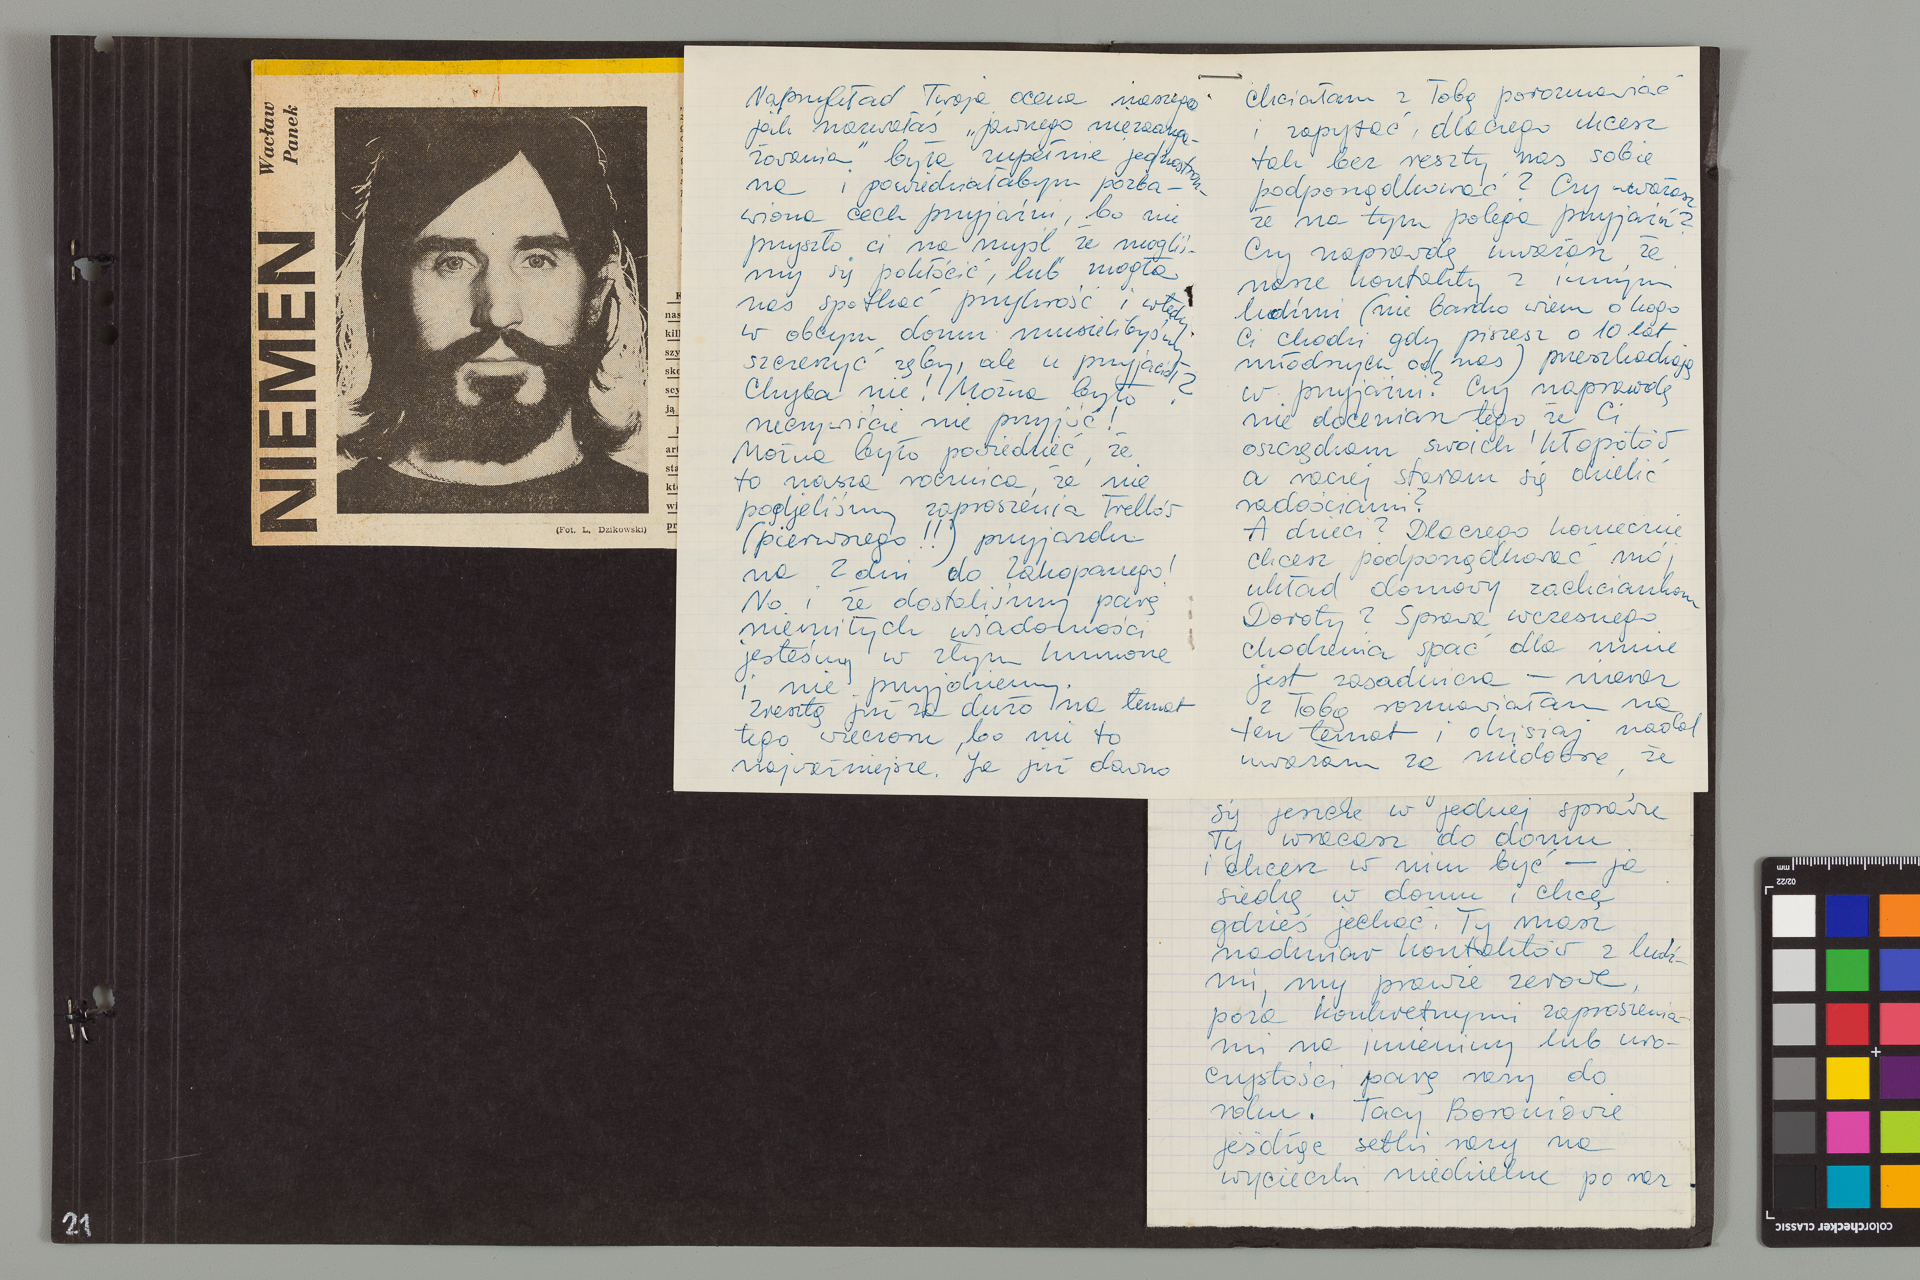 Wacław
Panek
NIEMEN
(Fot. L. Dzikowski)
nas
kil
szy
sk
scy
ją
art
sta
kt
wi
pr
Naprzykład Twoja ocena naszego
jak nazwałaś „jawnego niezaanga-
żowania” była zupełnie jednostron-
na i powiedziałabym pozba-
wiona cech przyjaźni, bo nie
przyszło ci na myśl że mogliś-
my się pokłócić, lub mogła
nas spotkać przykrość i wtedy
w obcym domu musielibyśmy
szczerzyć zęby, ale u przyjaciół?
Chyba nie! Można było
rzeczywiście nie przyjść!
Można było powiedzieć, że
to nasza rocznica, że nie
podjeliśmy zaproszenia Trellów
(pierwszego!!) przyjazdu
na 2 dni do Zakopanego!
No i że dostaliśmy parę
niemiłych wiadomości
jesteśmy w złym humorze
i nie przyjdziemy.
Zresztą już za dużo na temat
tego wieczoru, bo nie to
najważniejsze. Ja już dawno
chciałam z Tobą porozmawiać
i zapytać, dlaczego chcesz
tak bez reszty nas sobie
podporządkować? Czy uważasz
że na tym polega przyjaźń?
Czy naprawdę uważasz, że
nasze kontakty z innymi
ludźmi (nie bardzo wiem o kogo
Ci chodzi gdy piszesz o 10 lat
młodszych od nas) przeszkadzają
w przyjaźni? Czy naprawdę
nie doceniasz tego że Ci
oszczędzam swoich kłopotów
a raczej staram się dzielić
radościami?
A dzieci? Dlaczego koniecznie
chcesz podporządkować mój
układ domowy zachciankom
Doroty? Sprawa wczesnego
chodzenia spać dla mnie
jest zasadnicza – nieraz
z Tobą rozmawiałam na
ten temat i dzisiaj nadal
uważam za niedobre, że
się jeszcze w jednej sprawie
Ty wracasz do domu
i chcesz w nim być – ja
siedzę w domu i chcę
gdzieś jechać. Ty masz
nadmiar kontaktów z ludź-
mi, my prawie zerowe,
poza konkretnymi zaproszenia-
mi na imieniny lub uro-
czystości parę razy do
roku. Tacy Baraniowie
jeżdżąc setki razy na
wycieczki niedzielne po raz
21
mm
02/22
colorchecker CLASSIC